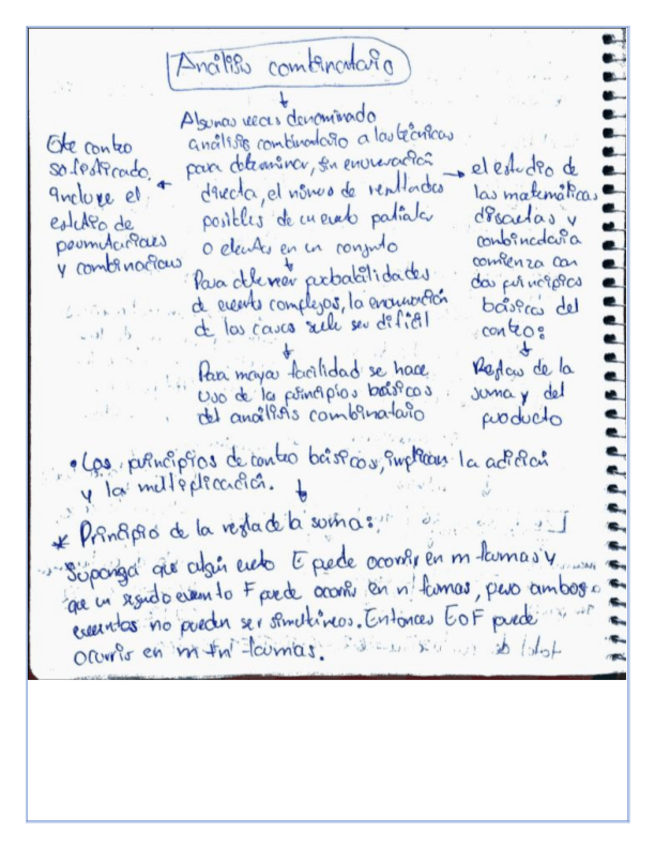 Análisis combinatorio
Algunas veces denominado
análisis combinatorio a las técnicas
para determinar, sin enumeración
directa, el número de resultados
posibles de un evento particular
o elementos en un conjunto
Este conteo
sofisticado,
incluye el
estudio de
permutaciones
y combinaciones
el estudio de
las matemáticas
discretas y
combinatoria
comienza con
dos principios
básicos del
conteo:
Reglas de la
suma y del
producto
Para obtener probabilidades
de evento complejos, la enumeración
de los casos suele ser difícil
Para mayor facilidad se hace
uso de los principios básicos
del análisis combinatorio
• Los principios de conteo básicos, implican la adición
y la multiplicación.
* Principio de la regla de la suma:
Suponga que algún evento E puede ocurrir en m formas y
que un segundo evento F puede ocurrir en n formas, pero ambos
eventos no pueden ser simultáneos. Entonces E o F puede
ocurrir en m + n formas.